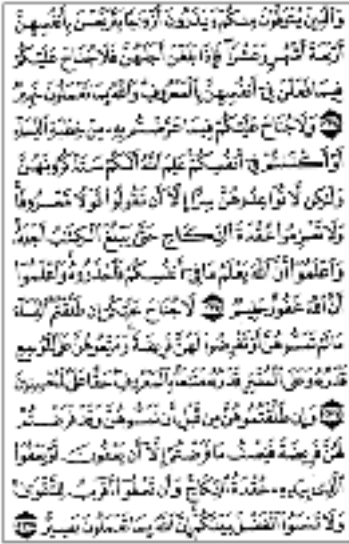 وَالَّذِينَ يُتَوَفَّوْنَ مِنكُمْ وَيَذَرُونَ أَزْوَاجًا يَتَرَبَّصْنَ بِأَنفُسِهِنَّ
أَرْبَعَةَ أَشْهُرٍ وَعَشْرًا فَإِذَا بَلَغْنَ أَجَلَهُنَّ فَلَا جُنَاحَ عَلَيْكُمْ
فِيمَا فَعَلْنَ فِي أَنفُسِهِنَّ بِالْمَعْرُوفِ وَاللَّهُ بِمَا تَعْمَلُونَ خَبِيرٌ
وَلَا جُنَاحَ عَلَيْكُمْ فِيمَا عَرَّضْتُم بِهِ مِنْ خِطْبَةِ النِّسَاءِ
أَوْ أَكْنَنتُمْ فِي أَنفُسِكُمْ عَلِمَ اللَّهُ أَنَّكُمْ سَتَذْكُرُونَهُنَّ
وَلَٰكِن لَّا تُوَاعِدُوهُنَّ سِرًّا إِلَّا أَن تَقُولُوا قَوْلًا مَّعْرُوفًا
وَلَا تَعْزِمُوا عُقْدَةَ النِّكَاحِ حَتَّىٰ يَبْلُغَ الْكِتَابُ أَجَلَهُ
وَاعْلَمُوا أَنَّ اللَّهَ يَعْلَمُ مَا فِي أَنفُسِكُمْ فَاحْذَرُوهُ وَاعْلَمُوا
أَنَّ اللَّهَ غَفُورٌ حَلِيمٌ لَّا جُنَاحَ عَلَيْكُمْ إِن طَلَّقْتُمُ النِّسَاءَ
مَا لَمْ تَمَسُّوهُنَّ أَوْ تَفْرِضُوا لَهُنَّ فَرِيضَةً وَمَتِّعُوهُنَّ عَلَى الْمُوسِعِ
قَدَرُهُ وَعَلَى الْمُقْتِرِ قَدَرُهُ مَتَاعًا بِالْمَعْرُوفِ حَقًّا عَلَى الْمُحْسِنِينَ
وَإِن طَلَّقْتُمُوهُنَّ مِن قَبْلِ أَن تَمَسُّوهُنَّ وَقَدْ فَرَضْتُمْ
لَهُنَّ فَرِيضَةً فَنِصْفُ مَا فَرَضْتُمْ إِلَّا أَن يَعْفُونَ أَوْ يَعْفُوَا
الَّذِي بِيَدِهِ عُقْدَةُ النِّكَاحِ وَأَن تَعْفُوا أَقْرَبُ لِلتَّقْوَىٰ
وَلَا تَنسَوُا الْفَضْلَ بَيْنَكُمْ إِنَّ اللَّهَ بِمَا تَعْمَلُونَ بَصِيرٌ